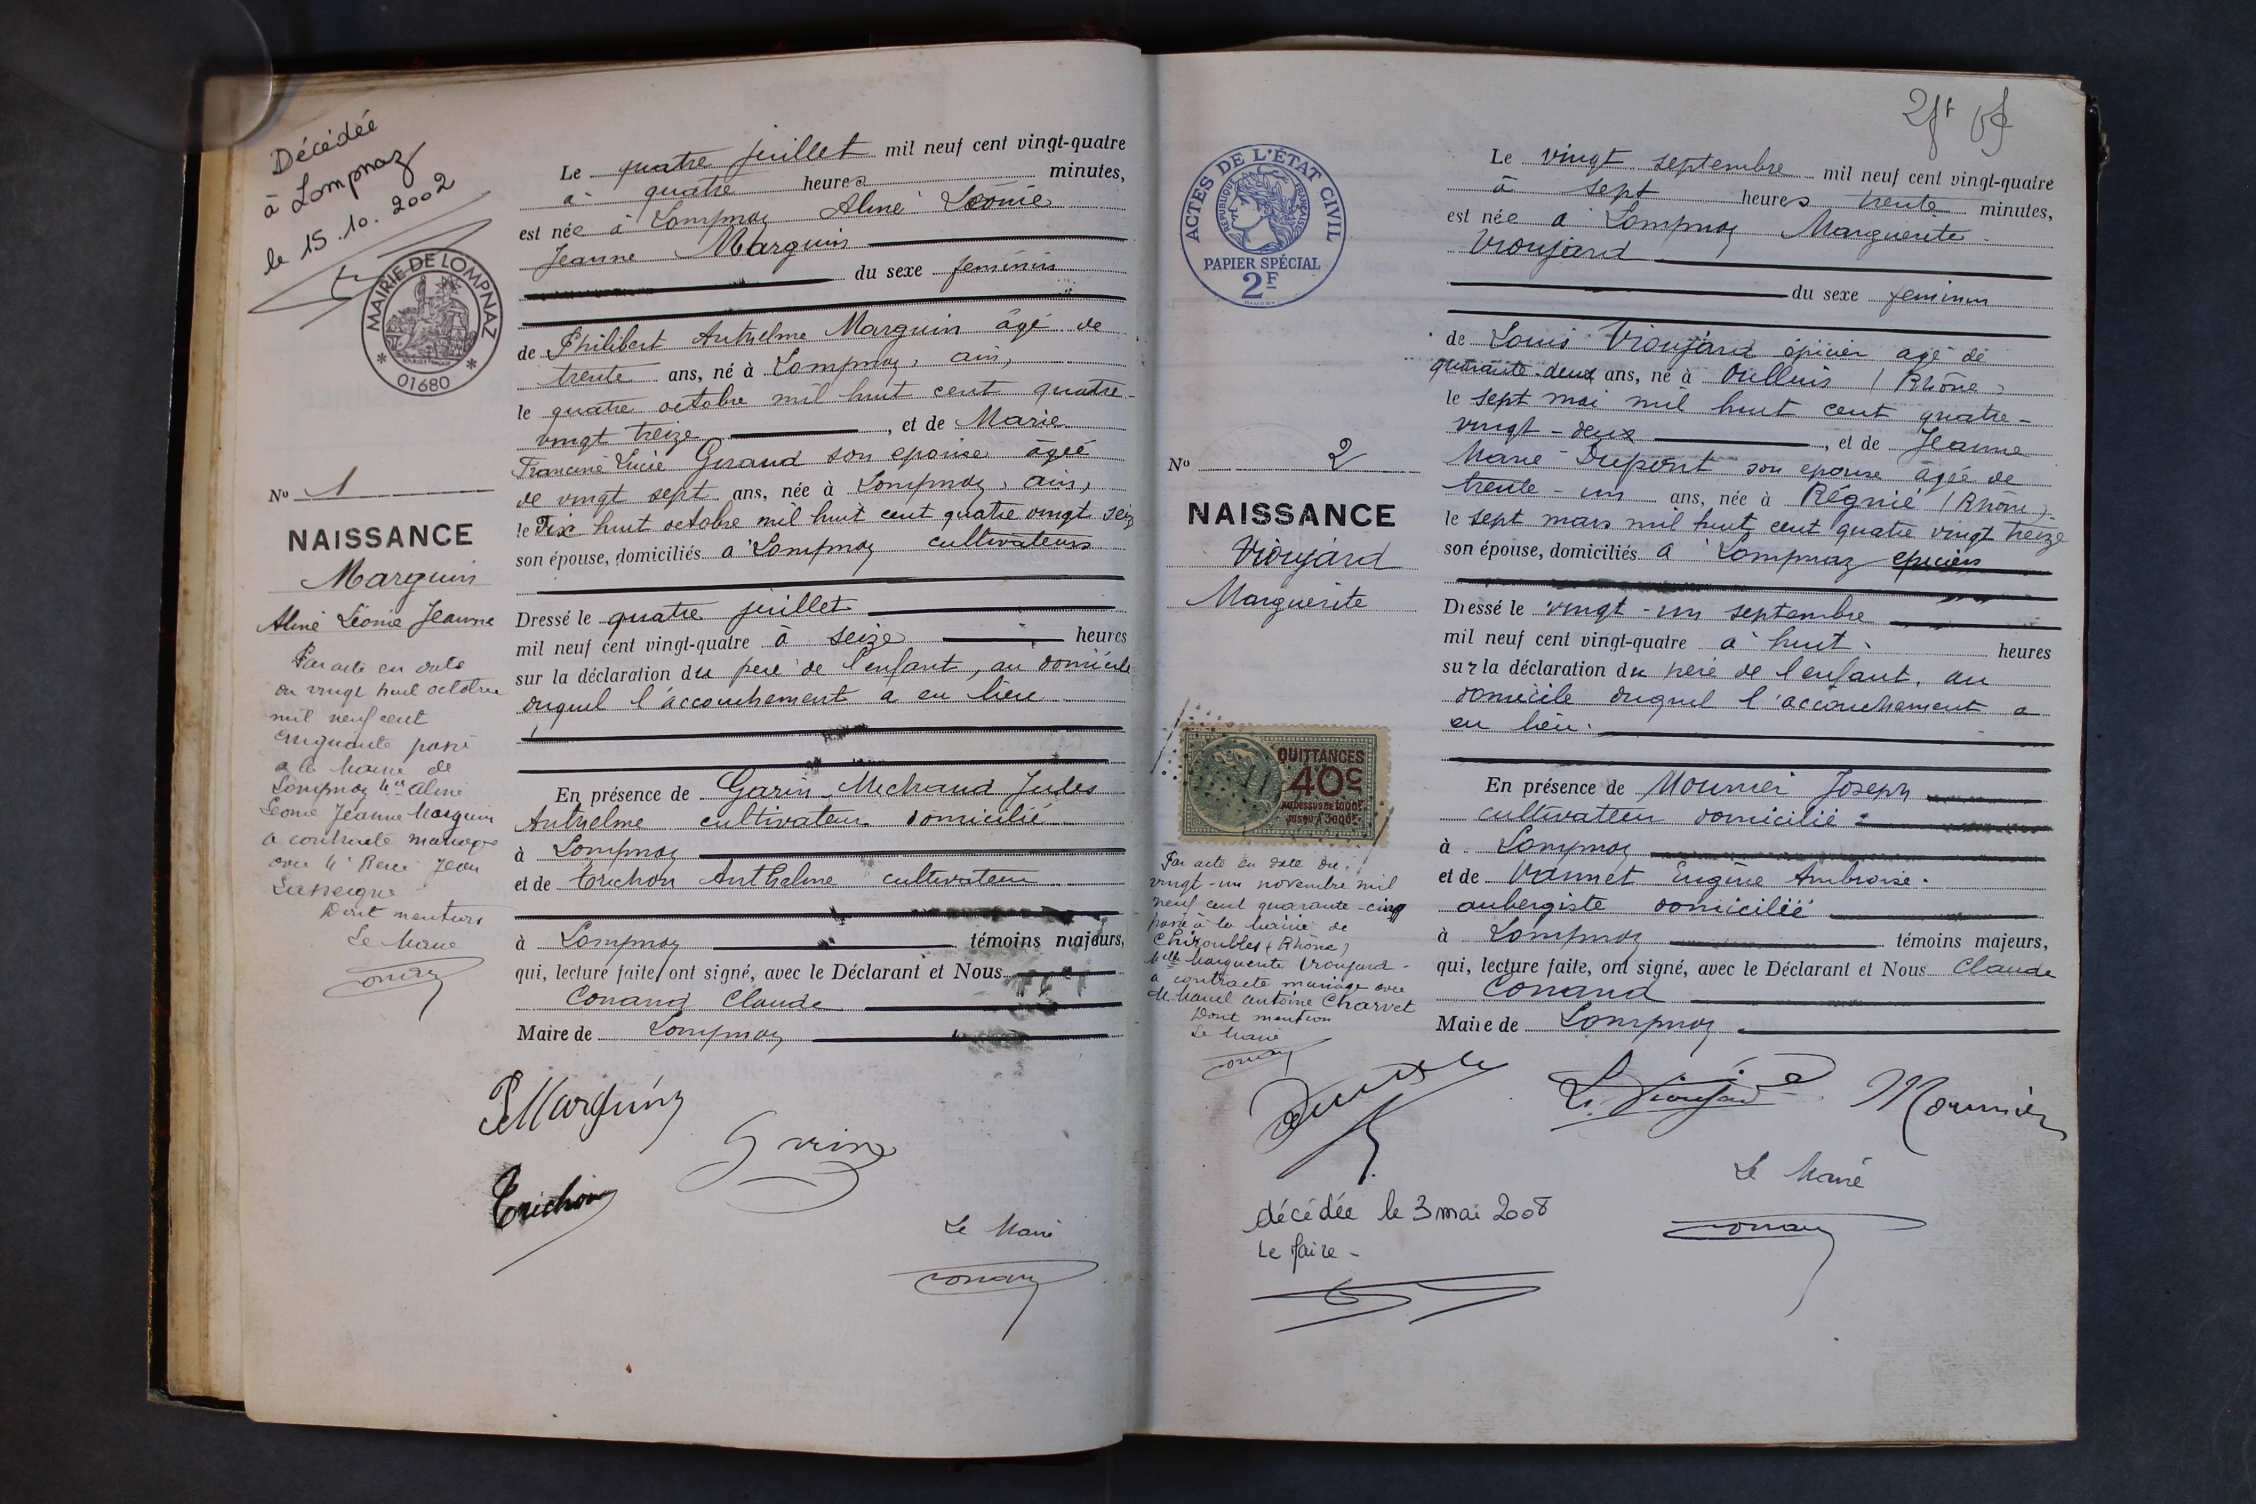 Décédée
à Lompnaz
le 15.10.2002
MAIRIE DE LOMPNAZ
* 01680 *
No 1
NAISSANCE
Marguin
Aline Léonie Jeanne
Par acte en date
du vingt huit octobre
mil neuf cent
cinquante passé
à la Mairie de
Lompnaz Mlle Aline
Léonie Jeanne Marguin
a contracté mariage
avec Mr René Jean
Dont mention
Le Maire
Conand
Le quatre juillet mil neuf cent vingt-quatre
à quatre heures minutes,
est née à Lompnaz Aline Léonie
Jeanne Marguin
du sexe feminin
de Philibert Anthelme Marguin âgé de
trente ans, né à Lompnaz, ain,
le quatre octobre mil huit cent quatre-
vingt treize, et de Marie
Francine Lucie Geraud son epouse âgée
de vingt sept ans, née à Lompnaz, ain,
le Dix huit octobre mil huit cent quatre vingt seize
son épouse, domiciliés a Lompnaz cultivateurs
Dressé le quatre juillet
mil neuf cent vingt-quatre à seize heures
sur la déclaration du pere de l'enfant, au domicile
duquel l'accouchement a eu lieu
En présence de Garin-Michaud Jules
Anthelme cultivateur domicilié
à Lompnaz
et de Trichon Anthelme cultivateur
à Lompnaz témoins majeurs,
qui, lecture faite, ont signé, avec le Déclarant et Nous
Conand Claude
Maire de Lompnaz
P Marguin
Garin
Trichon
Le Maire
Conand
ACTES DE L'ÉTAT CIVIL
RÉPUBLIQUE FRANÇAISE
PAPIER SPÉCIAL
2F
No 2
NAISSANCE
Vioujard
Marguerite
QUITTANCES
40c
AU DESSUS DE 1000F
JUSQU'À 3000F
Par acte en date du
vingt-un novembre mil
neuf cent quarante-cinq
passé à la Mairie de
Chiroubles (Rhône)
Mlle Marguerite Vioujard
a contracté mariage avec
Mr Marcel Antoine Charvet
Dont mention
Le Maire
Conand
Le vingt septembre mil neuf cent vingt-quatre
à sept heures trente minutes,
est née a Lompnaz Marguerite
Vioujard
du sexe feminin
de Louis Vioujard épicier agé de
quarante-deux ans, né à Oullins (Rhône)
le sept mai mil huit cent quatre-
vingt-deux, et de Jeanne
Marie Dupont son epouse âgée de
trente-un ans, née à Régnié (Rhône)
le sept mars mil huit cent quatre vingt treize
son épouse, domiciliés a Lompnaz epiciers
Dressé le vingt-un septembre
mil neuf cent vingt-quatre à huit heures
sur la déclaration du père de l'enfant, au
domicile duquel l'accouchement a
eu lieu.
En présence de Mounier Joseph
cultivateur domicilié
à Lompnaz
et de Vannet Eugène Ambroise
aubergiste domicilié
à Lompnaz témoins majeurs,
qui, lecture faite, ont signé, avec le Déclarant et Nous Claude
Conand
Maire de Lompnaz
L. Vioujard
Mounier
Le Maire
Conand
décédée le 3 mai 2008
Le Maire -